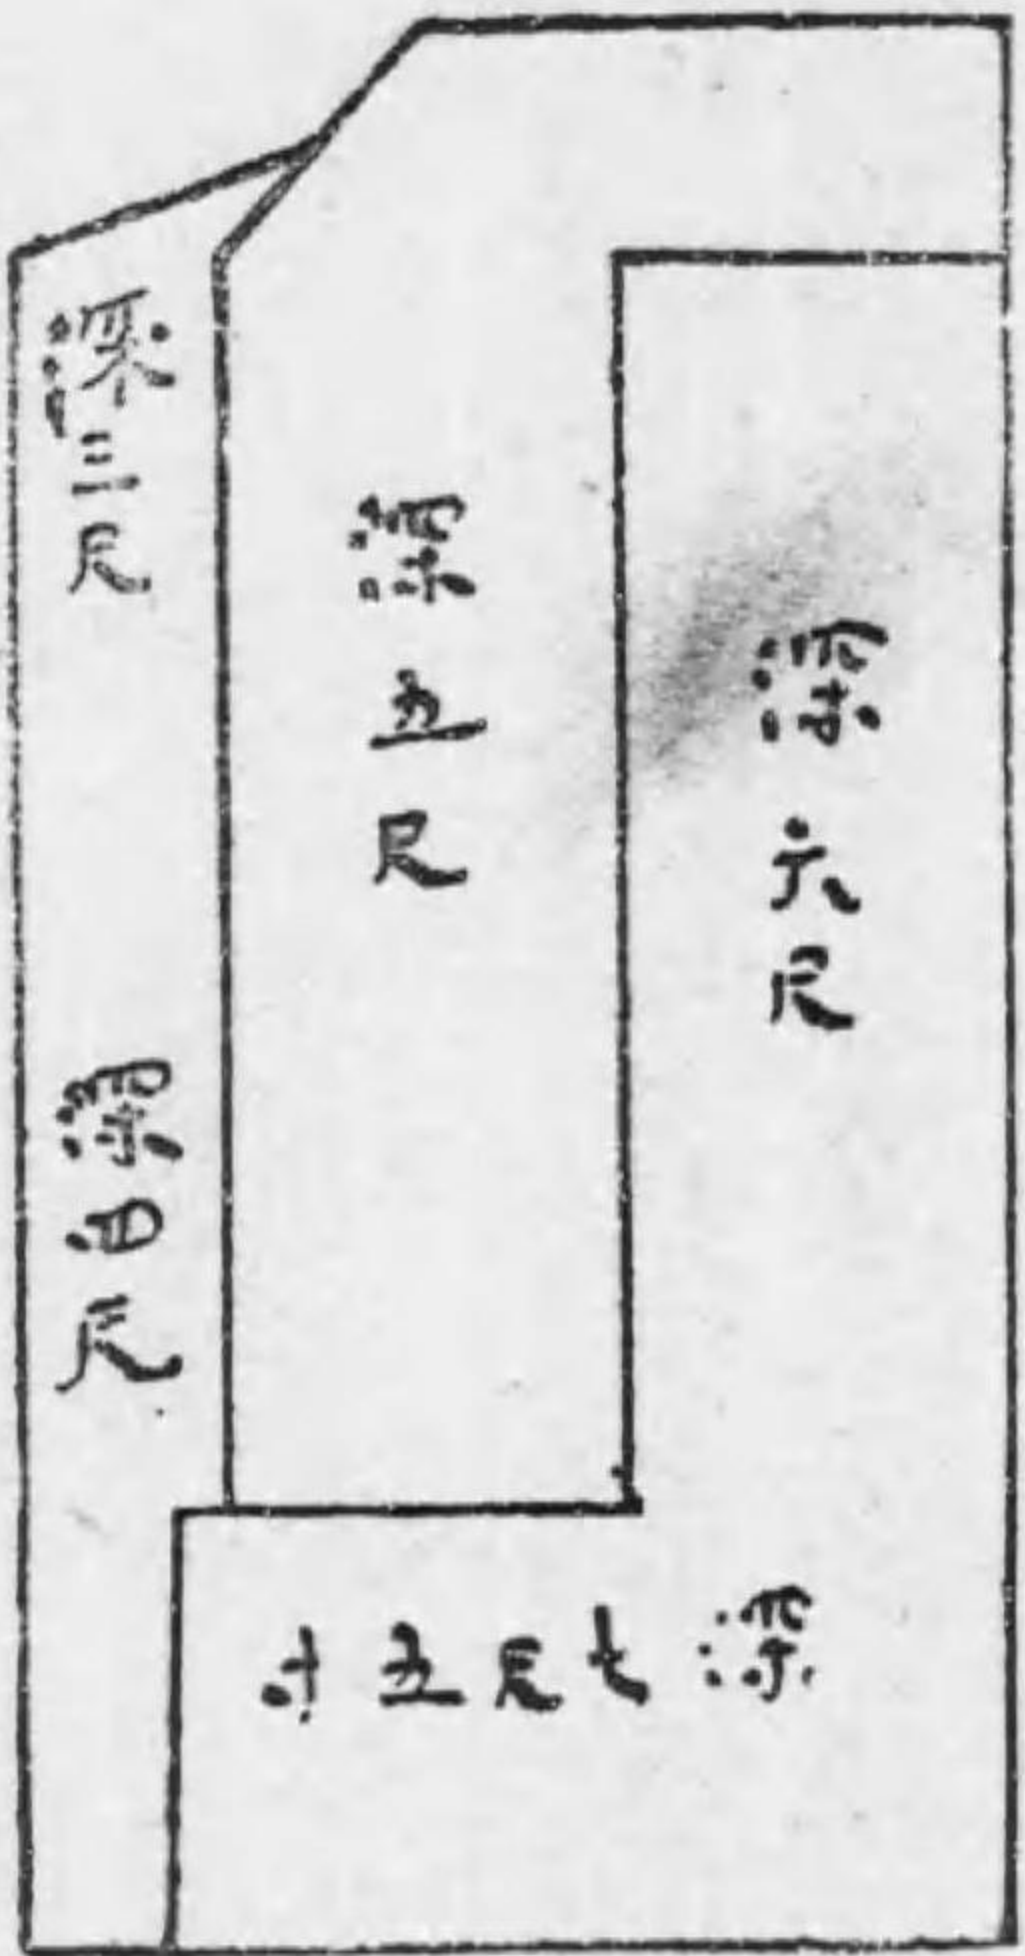 深六尺
深五尺
深三尺
深四尺
深七尺五寸